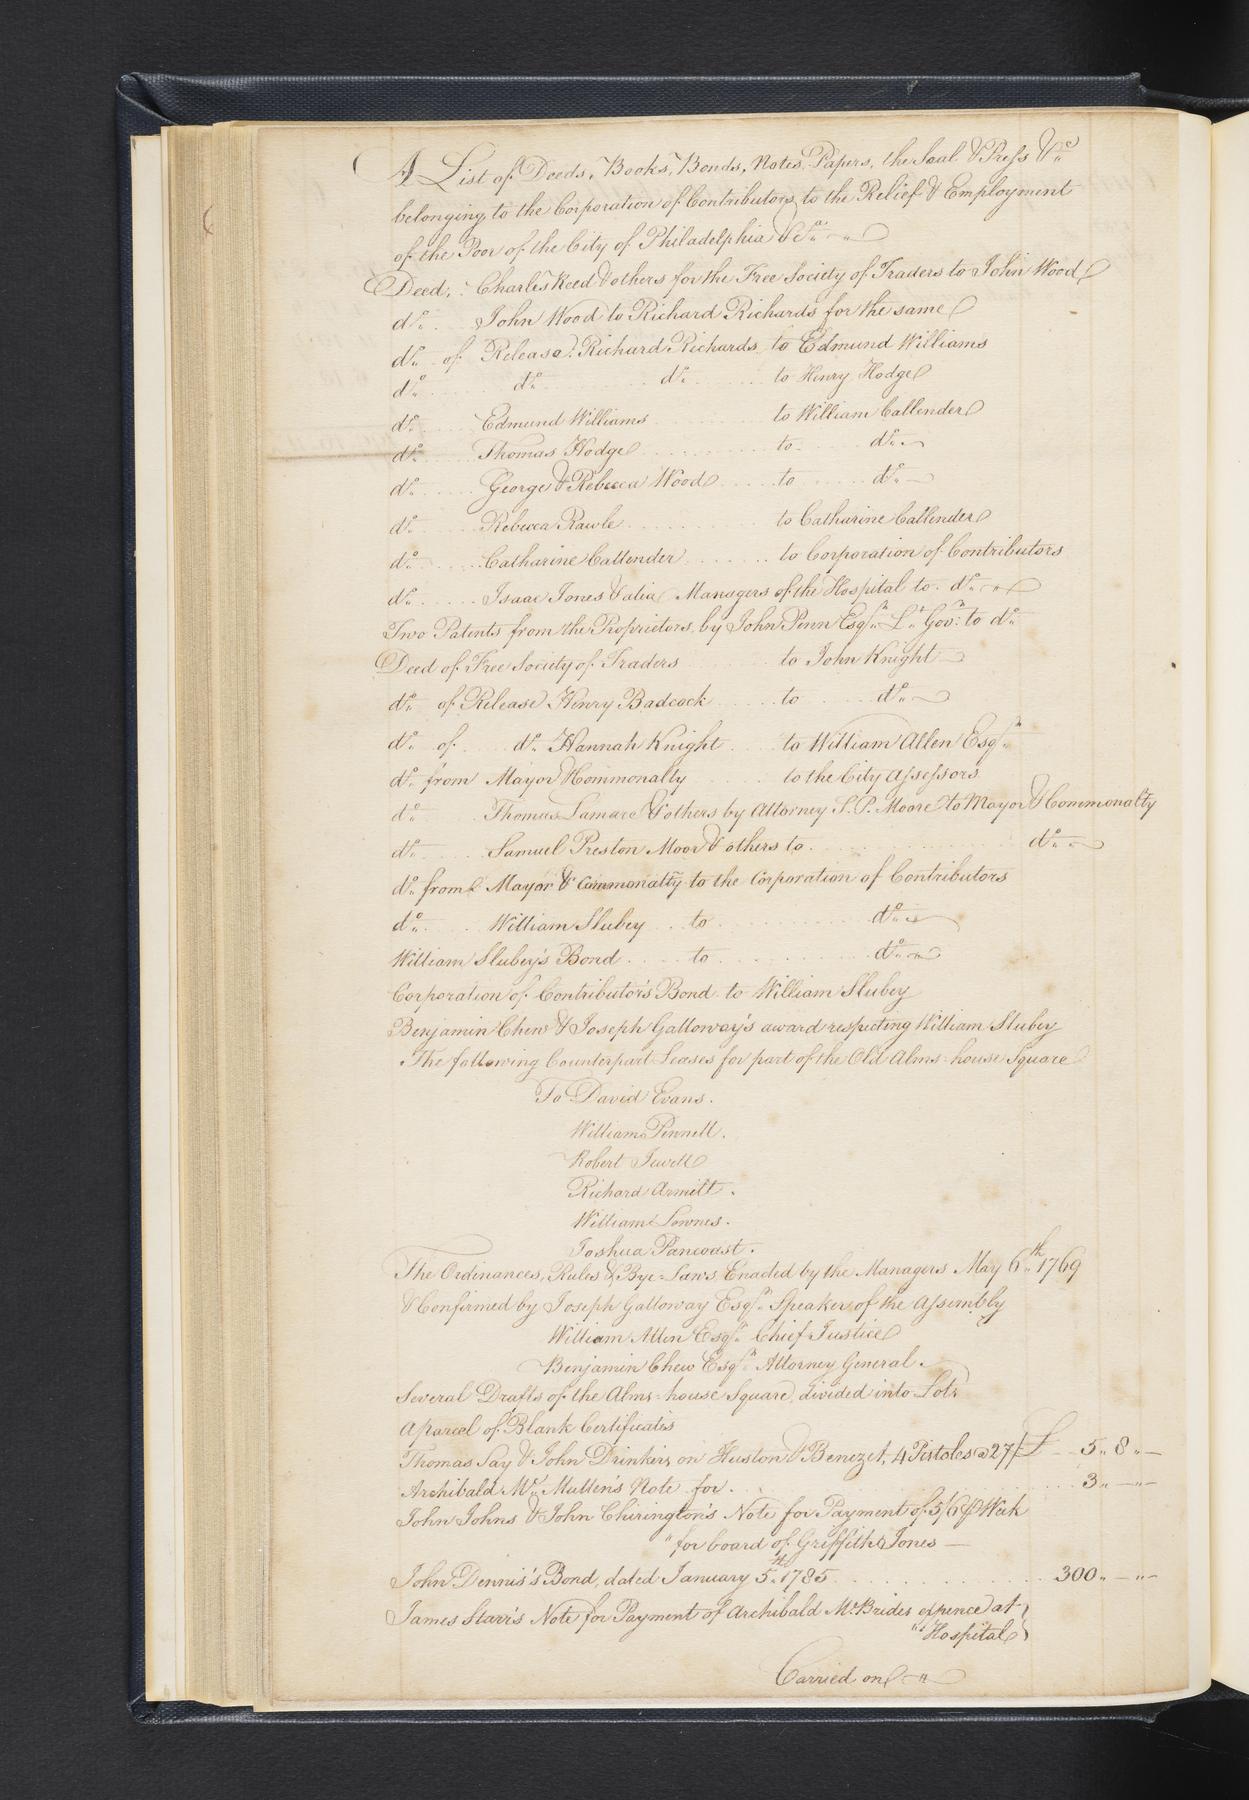 A List of Deeds, Books, Bonds, Notes, Papers, the Seal & Press &c.
belonging to the Corporation of Contributors to the Relief & Employment
of the Poor of the City of Philadelphia &c.
Deed, : Charles Reed & others for the Free Society of Traders to John Wood
do. John Wood to Richard Richards for the same
do. of Release. Richard Richards to Edmund Williams
do. do. do. to Henry Hodge
do. Edmund Williams to William Callender
do. Thomas Hodge to do.
do. George & Rebecca Wood to do.
do. Rebecca Rawle to Catharine Callender
do. Catharine Callender to Corporation of Contributors
do. Isaac Jones & alia Managers of the Hospital to do.
Two Patents from the Proprietors, by John Penn Esqr. Lt. Govr. to do.
Deed of Free Society of Traders to John Knight
do. of Release Henry Badcock to do.
do. of do. Hannah Knight to William Allen Esqr.
do. from Mayor & Commonalty to the City Assessors
do. Thomas Lamare & others by Attorney S. P. Moore to Mayor & Commonalty
do. Samuel Preston Moor & others to do.
do. from Mayor & Commonalty to the Corporation of Contributors
do. William Slubey to do.
William Slubey's Bond to do.
Corporation of Contributor's Bond to William Slubey
Benjamin Chew & Joseph Galloway's award respecting William Slubey
The following Counterpart Leases for part of the Old Alms-house Square
To David Evans.
William Pennell.
Robert Jewell
Richard Armitt.
William Lownes.
Joshua Pancoast.
The Ordinances, Rules & Bye-Laws, Enacted by the Managers May 6th. 1769
& Confirmed by Joseph Galloway Esqr. Speaker of the Assembly
William Allen Esqr. Chief Justice
Benjamin Chew Esqr. Attorney General.
Several Drafts of the Alms-house Square, divided into Lots
A parcel of Blank Certificates
Thomas Say & John Drinker, on Huston & Benezet, 4 Pistoles @ 27/ £ 5 " 8 " —
Archibald Mc. Mullen's Note for 3 " — " —
John Johns & John Chirington's Note for Payment of 5/6 ⅌ Week
" for board of Griffith Jones —
John Dennis's Bond, dated January 5th. 1785 300 " — " —
James Starr's Note for Payment of Archibald McBrides expence at
" Hospital
Carried on